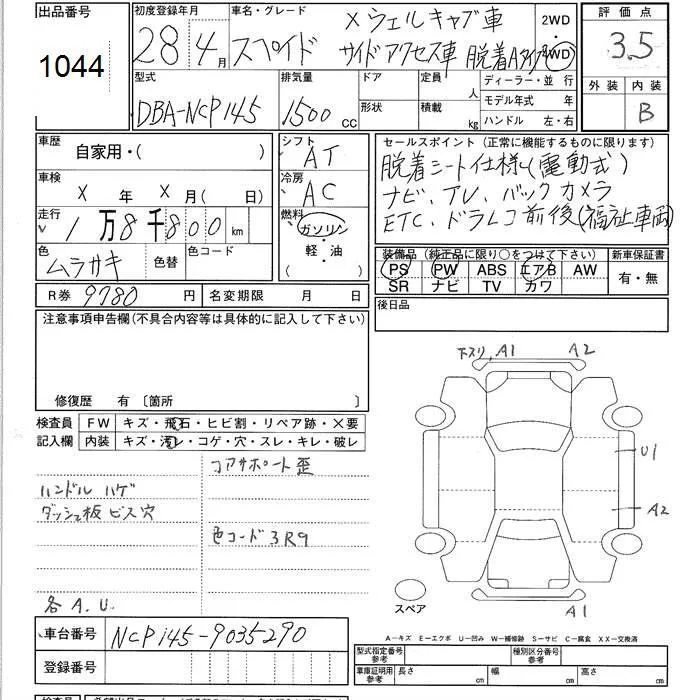 出品番号
1044
初度登録年月
28年 4月
車名・グレード
スペイド
×ウェルキャブ車
サイドアクセス車 脱着Aタイプ
2WD
・
4WD
評価点
3.5
外装 内装
B
型式
DBA-NCP145
排気量
1500 CC
ドア
形状
定員
人
積載
kg
ディーラー・並行
モデル年式 年
ハンドル 左・右
車歴
自家用・( )
車検
X 年 X 月( 日)
走行
1万8千800 km
色
ムラサキ
色替
色コード
シフト
AT
冷房
AC
燃料
ガソリン
・
軽・油
( )
セールスポイント (正常に機能するものに限ります)
脱着シート仕様(電動式)
ナビ、TV、バックカメラ
ETC、ドラレコ前後(福祉車両)
装備品 (純正品に限り○をつけて下さい)
PS PW ABS エアB AW
SR ナビ TV カワ
新車保証書
有・無
R券 9780 円
名変期限 月 日
後日品
注意事項申告欄(不具合内容等は具体的に記入して下さい)
修復歴 有〔箇所 〕
検査員
記入欄
FW キズ・飛石・ヒビ割・リペア跡・X要
内装 キズ・汚レ・コゲ・穴・スレ・キレ・破レ
コアサポート歪
ハンドル ハゲ
ダッシュ板 ビス穴
色コード 3R9
各 A.U.
下スリ A1 A2
U1
A2
スペア
A1
A-キズ E-エクボ U-凹み W-補修跡 S-サビ C-腐食 XX-交換済
車台番号 NCP145-9035290
登録番号
型式指定番号
参考
種別区分番号
参考
車庫証明用
参考
長さ cm
幅 cm
高さ cm